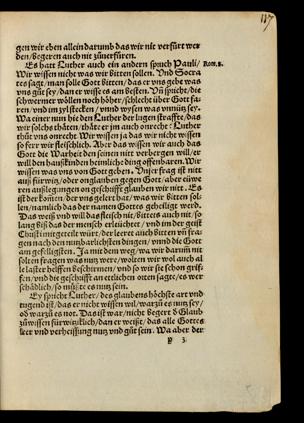 117
gen wir eben allein darumb das wir nit verfürt wer
den/begeren auch nit zůuerfüren.
Es hatt Luther auch ein andern spruch Pauli/ Rom.8.
Wir wissen nicht was wir bitten sollen. Vnd Socra
tes sagt/man solle Gott bitten/das er vns gebe was
vns gůt sey/dan er wisse es am besten. Vñ spricht/die
schwermer wöllen noch höher/schlecht über Gott fa
ren/vnd im zyl stecken/vnnd wysen was vnnütz sey.
Wa einer nun hie den Luther der lugen straffte/das
wir solchs thäten/thäte er jm auch onrecht: Luther
thůt vns onrecht. Wissen ja wir das wir nicht wissen
so ferr wir fleischlich. Aber das wissen wir auch das
Gott die Warheit den seinen nitt verbergen will/er
will den haußkinden heimliche ding offenbaren. Wir
wissen was vns von Gott geben. Vnser frag ist nitt
auß fürwitz/oder onglauben gegen Gott/aber eüwe
ren außlegungen on geschifft glauben wir nitt. Es
ist der vns gelert hat/was wir bitten sol
len/namlich das der namen Gottes geheiliget werd.
Das weiß vnd will das fleisch nit/bittets auch nit/so
lang biß das der mensch erleüchtet/vnd im der geist
Christi mitgeteilt würt/der leeret auch bitten vñ fra
gen nach den dingen/vnnd die Gott
am gefelligsten. Ja mit dem weg/wa wir darumb nit
solten fragen was nutz were/wolten wir wol auch al
le laster helffen beschirmen/vnd so wir sie schon griff
en/vnd die geschifft an etlichen orten sagte/es wer
schädlich/so müßte es nutz sein.
Ey spricht Luther/des glaubens höchste art vnd
tugend ist/das er nicht wissen wil/warzů es nutz sey/
od warzů es not. Das ist war/nicht begert ď Glaub
zůwissen fürwitzklich/dan er weißt/das alle Gottes
leer vnd verheissung nutz vnd gůt sein. Wa aber der
p 3